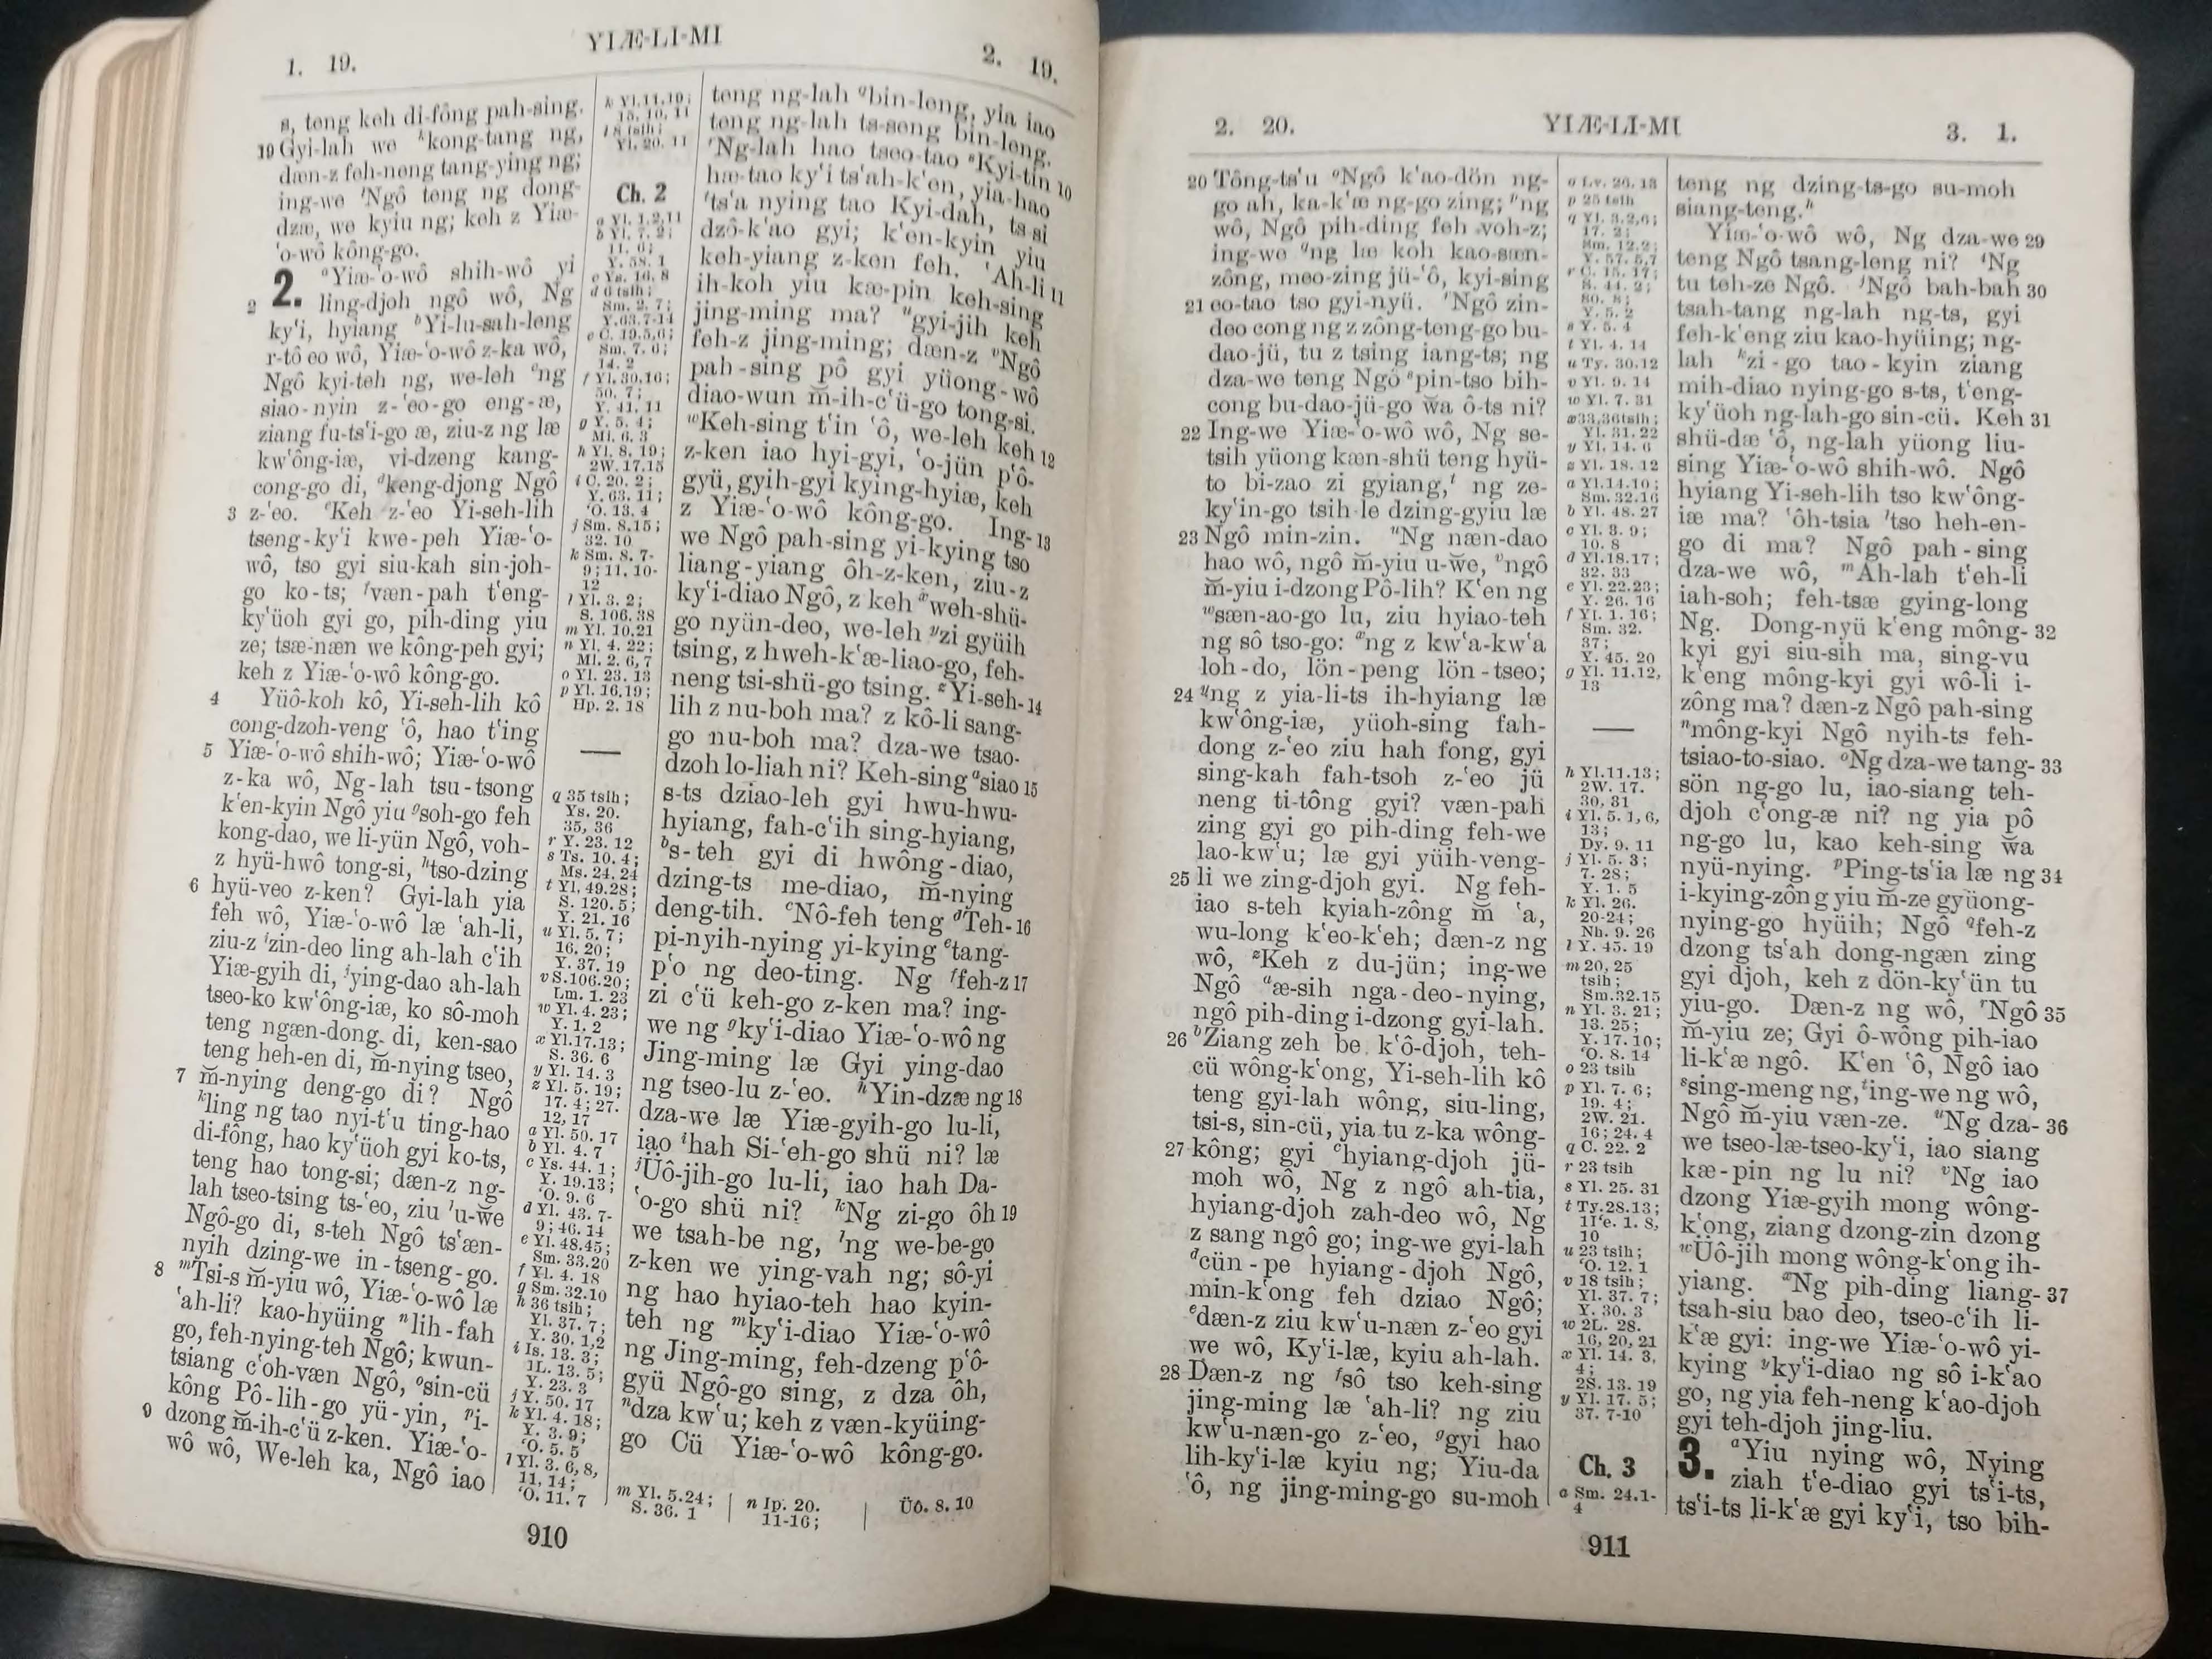 1. 19.
YIÆ-LI-MI
2. 19.
s, teng keh di-fông pah-sing.
19 Gyi-lah we ᵏkong-tang ng,
dæn-z feh-neng tang-ying ng;
ing-we ˡNgô teng ng dong-
dzæ, we kyiu ng; keh z Yiæ-
ʻo-wô kông-go.
2. ᵃYiæ-ʻo-wô shih-wô yi
2 ling-djoh ngô wô, Ng
kyʻi, hyiang ᵇYi-lu-sah-leng
r-tô eo wô, Yiæ-ʻo-wô z-ka wô,
Ngô kyi-teh ng, we-leh ᶜng
siao-nyin z-ʻeo-go eng-æ,
ziang fu-tsʻi-go æ, ziu-z ng læ
kwʻông-iæ, vi-dzeng kang-
cong-go di, ᵈkeng-djong Ngô
3 z-ʻeo. ᵉKeh z-ʻeo Yi-seh-lih
tseng-kyʻi kwe-peh Yiæ-ʻo-
wô, tso gyi siu-kah sin-joh-
go ko-ts; ᶠvæn-pah tʻeng-
kyʻüoh gyi go, pih-ding yiu
ze; tsæ-næn we kông-peh gyi;
keh z Yiæ-ʻo-wô kông-go.
4 Yüô-koh kô, Yi-seh-lih kô
cong-dzoh-veng ʻô, hao tʻing
5 Yiæ-ʻo-wô shih-wô; Yiæ-ʻo-wô
z-ka wô, Ng-lah tsu-tsong
kʻen-kyin Ngô yiu ᵍsoh-go feh
kong-dao, we li-yün Ngô, voh-
z hyü-hwô tong-si, ʰtso-dzing
6 hyü-veo z-ken? Gyi-lah yia
feh wô, Yiæ-ʻo-wô læ ʻah-li,
ziu-z ⁱzin-deo ling ah-lah cʻih
Yiæ-gyih di, ʲying-dao ah-lah
tseo-ko kwʻông-iæ, ko sô-moh
teng ngæn-dong. di, ken-sao
teng heh-en di, m̆-nying tseo,
7 m̆-nying deng-go di? Ngô
ᵏling ng tao nyi-tʻu ting-hao
di-fông, hao kyʻüoh gyi ko-ts,
teng hao tong-si; dæn-z ng-
lah tseo-tsing ts-ʻeo, ziu ˡu-w̆e
Ngô-go di, s-teh Ngô tsʻæn-
nyih dzing-we in-tseng-go.
8 ᵐTsi-s m̆-yiu wô, Yiæ-ʻo-wô læ
ʻah-li? kao-hyüing ⁿlih-fah
go, feh-nying-teh Ngô; kwun-
tsiang cʻoh-væn Ngô, ᵒsin-cü
kông Pô-lih-go yü-yin, ᵖi-
9 dzong m̆-ih-cʻü z-ken. Yiæ-ʻo-
wô wô, We-leh ka, Ngô iao
k Yl.11.19;
15. 10, 11
l 8 tsih;
Yl. 20. 11
Ch. 2
a Yl. 1.2,11
b Yl. 7. 2;
11. 6;
Y. 58. 1
c Ys. 16. 8
d 6 tsih;
Sm. 2. 7;
Y.63.7-14
e C. 19.5,6;
Sm. 7. 6;
14. 2
f Yl.30.16;
50. 7;
Y. 41. 11
g Y. 5. 4;
Mi. 6. 3
h Yl. 8. 19;
2W. 17.15
i C. 20. 2;
Y. 63. 11;
ʻO. 13. 4
j Sm. 8.15;
32. 10
k Sm. 8. 7-
9; 11. 10-
12
l Yl. 3. 2;
S. 106.38
m Yl. 10.21
n Yl. 4. 22;
Ml. 2. 6, 7
o Yl. 23. 13
p Yl. 16.19;
Hp. 2. 18
q 35 tsih;
Ys. 20.
35, 36
r Y. 23. 12
s Ts. 10. 4;
Ms. 24. 24
t Yl. 49.28;
S. 120. 5;
Y. 21. 16
u Yl. 5. 7;
16. 20;
Y. 37. 19
v S.106.20;
Lm. 1. 23
w Yl. 4. 23;
Y. 1. 2
x Yl.17.13;
S. 36. 6
y Yl. 14. 3
z Yl. 5. 19;
17. 4; 27.
12, 17
a Yl. 50. 17
b Yl. 4. 7
c Ys. 44. 1;
Y. 19.13;
ʻO. 9. 6
d Yl. 43. 7-
9; 46. 14
e Yl. 48.45;
Sm. 33.20
f Yl. 4. 18
g Sm. 32.10
h 36 tsih;
Yl. 37. 7;
Y. 30. 1,2
i Is. 13. 3;
1L. 13. 5;
Y. 23. 3
j Y. 50. 17
k Yl. 4. 18;
Y. 3. 9;
ʻO. 5. 5
l Yl. 3. 6, 8,
11, 14;
ʻO. 11. 7
teng ng-lah ᑫbin-leng, yia iao
teng ng-lah ts-seng bin-leng.
ʳNg-lah hao tseo-tao ˢKyi-tin 10
hæ-tao kyʻi tsʻah-kʻen, yia-hao
ᵗtsʻa nying tao Kyi-dah, ts si
dzô-kʻao gyi; kʻen-kyin yiu
keh-yiang z-ken feh. ʻAh-li 11
ih-koh yiu kæ-pin keh-sing
jing-ming ma? ᵘgyi-jih keh
feh-z jing-ming; dæn-z ᵛNgô
pah-sing pô gyi yüong-wô
diao-wun m̆-ih-cʻü-go tong-si.
ʷKeh-sing tʻin ʻô, we-leh keh 12
z-ken iao hyi-gyi, ʻo-jün pʻô-
gyü, gyih-gyi kying-hyiæ, keh
z Yiæ-ʻo-wô kông-go. Ing- 13
we Ngô pah-sing yi-kying tso
liang-yiang ôh-z-ken, ziu-z
kyʻi-diao Ngô, z keh ˣweh-shü-
go nyün-deo, we-leh ʸzi gyüih
tsing, z hweh-kʻæ-liao-go, feh-
neng tsi-shü-go tsing. ᶻYi-seh- 14
lih z nu-boh ma? z kô-li sang-
go nu-boh ma? dza-we tsao-
dzoh lo-liah ni? Keh-sing ᵃsiao 15
s-ts dziao-leh gyi hwu-hwu-
hyiang, fah-cʻih sing-hyiang,
ᵇs-teh gyi di hwông-diao,
dzing-ts me-diao, m̆-nying
deng-tih. ᶜNô-feh teng ᵈTeh- 16
pi-nyih-nying yi-kying ᵉtang-
pʻo ng deo-ting. Ng ᶠfeh-z 17
zi cʻü keh-go z-ken ma? ing-
we ng ᵍkyʻi-diao Yiæ-ʻo-wô ng
Jing-ming læ Gyi ying-dao
ng tseo-lu z-ʻeo. ʰYin-dzæ ng 18
dza-we læ Yiæ-gyih-go lu-li,
iao ⁱhah Si-ʻeh-go shü ni? læ
ʲÜô-jih-go lu-li, iao hah Da-
ʻo-go shü ni? ᵏNg zi-go ôh 19
we tsah-be ng, ˡng we-be-go
z-ken we ying-vah ng; sô-yi
ng hao hyiao-teh hao kyin-
teh ng ᵐkyʻi-diao Yiæ-ʻo-wô
ng Jing-ming, feh-dzeng pʻô-
gyü Ngô-go sing, z dza ôh,
ⁿdza kwʻu; keh z væn-kyüing-
go Cü Yiæ-ʻo-wô kông-go.
m Yl. 5.24;
S. 36. 1
n Ip. 20.
11-16;
Üô. 8. 10
910
2. 20.
YIÆ-LI-MI
3. 1.
20 Tông-tsʻu ᵒNgô kʻao-dön ng-
go ah, ka-kʻæ ng-go zing; ᵖng
wô, Ngô pih-ding feh voh-z;
ing-we ᑫng læ koh kao-sæn-
zông, meo-zing jü-ʻô, kyi-sing
21 eo-tao tso gyi-nyü. ʳNgô zin-
deo cong ng z zông-teng-go bu-
dao-jü, tu z tsing iang-ts; ng
dza-we teng Ngô ˢpin-tso bih-
cong bu-dao-jü-go w̆a ô-ts ni?
22 Ing-we Yiæ-ʻo-wô wô, Ng se-
tsih yüong kæn-shü teng hyü-
to bi-zao zi gyiang,ᵗ ng ze-
kyʻin-go tsih le dzing-gyiu læ
23 Ngô min-zin. ᵘNg næn-dao
hao wô, ngô m̆-yiu u-w̆e, ᵛngô
m̆-yiu i-dzong Pô-lih? Kʻen ng
ʷsæn-ao-go lu, ziu hyiao-teh
ng sô tso-go: ˣng z kwʻa-kwʻa
loh-do, lön-peng lön-tseo;
24 ʸng z yia-li-ts ih-hyiang læ
kwʻông-iæ, yüoh-sing fah-
dong z-ʻeo ziu hah fong, gyi
sing-kah fah-tsoh z-ʻeo jü
neng ti-tông gyi? væn-pah
zing gyi go pih-ding feh-we
lao-kwʻu; læ gyi yüih-veng-
25 li we zing-djoh gyi. Ng feh-
iao s-teh kyiah-zông m̆ ʻa,
wu-long kʻeo-kʻeh; dæn-z ng
wô, ᶻKeh z du-jün; ing-we
Ngô ᵃæ-sih nga-deo-nying,
ngô pih-ding i-dzong gyi-lah.
26 ᵇZiang zeh be kʻô-djoh, teh-
cü wông-kʻong, Yi-seh-lih kô
teng gyi-lah wông, siu-ling,
tsi-s, sin-cü, yia tu z-ka wông-
27 kông; gyi ᶜhyiang-djoh jü-
moh wô, Ng z ngô ah-tia,
hyiang-djoh zah-deo wô, Ng
z sang ngô go; ing-we gyi-lah
ᵈcün-pe hyiang-djoh Ngô,
min-kʻong feh dziao Ngô;
ᵉdæn-z ziu kwʻu-næn z-ʻeo gyi
we wô, Kyʻi-læ, kyiu ah-lah.
28 Dæn-z ng ᶠsô tso keh-sing
jing-ming læ ʻah-li? ng ziu
kwʻu-næn-go z-ʻeo, ᵍgyi hao
lih-kyʻi-læ kyiu ng; Yiu-da
ʻô, ng jing-ming-go su-moh
o Lv. 26. 13
p 25 tsih
q Yl. 3.2,6;
17. 2;
Sm. 12.2;
Y. 57. 5,7
r C. 15. 17;
S. 44. 2;
80. 8;
Y. 5. 2
s Y. 5. 4
t Yl. 4. 14
u Ty. 30.12
v Yl. 9. 14
w Yl. 7. 31
x 33,36tsih;
Yl. 31. 22
y Yl. 14. 6
z Yl. 18. 12
a Yl.14.10;
Sm. 32.16
b Yl. 48. 27
c Yl. 3. 9;
10. 8
d Yl.18.17;
32. 33
e Yl. 22.23;
Y. 26. 16
f Yl. 1. 16;
Sm. 32.
37;
Y. 45. 20
g Yl. 11.12,
13
h Yl.11.13;
2W. 17.
30, 31
i Yl. 5. 1, 6,
13;
Dy. 9. 11
j Yl. 5. 3;
7. 28;
Y. 1. 5
k Yl. 26.
20-24;
Nh. 9. 26
l Y. 45. 19
m 20, 25
tsih;
Sm.32.15
n Yl. 3. 21;
13. 25;
Y. 17. 10;
ʻO. 8. 14
o 23 tsih
p Yl. 7. 6;
19. 4;
2W. 21.
16; 24. 4
q C. 22. 2
r 23 tsih
s Yl. 25. 31
t Ty.28.13;
1Iʻe. 1. 8,
10
u 23 tsih;
ʻO. 12. 1
v 18 tsih;
Yl. 37. 7;
Y. 30. 3
w 2L. 28.
16, 20, 21
x Yl. 14. 3,
4;
2S. 13. 19
y Yl. 17. 5;
37. 7-10
Ch. 3
a Sm. 24.1-
4
teng ng dzing-ts-go su-moh
siang-teng.ʰ
Yiæ-ʻo-wô wô, Ng dza-we 29
teng Ngô tsang-leng ni? ⁱNg
tu teh-ze Ngô. ʲNgô bah-bah 30
tsah-tang ng-lah ng-ts, gyi
feh-kʻeng ziu kao-hyüing; ng-
lah ᵏzi-go tao-kyin ziang
mih-diao nying-go s-ts, tʻeng-
kyʻüoh ng-lah-go sin-cü. Keh 31
shü-dæ ʻô, ng-lah yüong liu-
sing Yiæ-ʻo-wô shih-wô. Ngô
hyiang Yi-seh-lih tso kwʻông-
iæ ma? ʻôh-tsia ˡtso heh-en-
go di ma? Ngô pah-sing
dza-we wô, ᵐAh-lah tʻeh-li
iah-soh; feh-tsæ gying-long
Ng. Dong-nyü kʻeng mông- 32
kyi gyi siu-sih ma, sing-vu
kʻeng mông-kyi gyi wô-li i-
zông ma? dæn-z Ngô pah-sing
ⁿmông-kyi Ngô nyih-ts feh-
tsiao-to-siao. ᵒNg dza-we tang- 33
sön ng-go lu, iao-siang teh-
djoh cʻong-æ ni? ng yia pô
ng-go lu, kao keh-sing w̆a
nyü-nying. ᵖPing-tsʻia læ ng 34
i-kying-zông yiu m̆-ze gyüong-
nying-go hyüih; Ngô ᑫfeh-z
dzong tsʻah dong-ngæn zing
gyi djoh, keh z dön-kyʻün tu
yiu-go. Dæn-z ng wô, ʳNgô 35
m̆-yiu ze; Gyi ô-wông pih-iao
li-kʻæ ngô. Kʻen ʻô, Ngô iao
ˢsing-meng ng, ᵗing-we ng wô,
Ngô m̆-yiu væn-ze. ᵘNg dza- 36
we tseo-læ-tseo-kyʻi, iao siang
kæ-pin ng lu ni? ᵛNg iao
dzong Yiæ-gyih mong wông-
kʻong, ziang dzong-zin dzong
ʷÜô-jih mong wông-kʻong ih-
yiang. ˣNg pih-ding liang- 37
tsah-siu bao deo, tseo-cʻih li-
kʻæ gyi: ing-we Yiæ-ʻo-wô yi-
kying ʸkyʻi-diao ng sô i-kʻao
go, ng yia feh-neng kʻao-djoh
gyi teh-djoh jing-liu.
3. ᵃYiu nying wô, Nying
ziah tʻe-diao gyi tsʻi-ts,
tsʻi-ts li-kʻæ gyi kyʻi, tso bih-
911